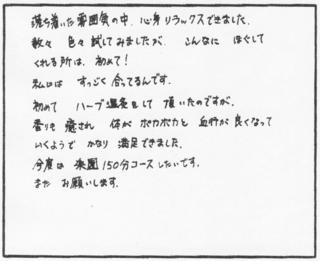 落ち着いた雰囲気の中、心身リラックスできました。
数々 色々試してみましたが、こんなに ほぐして
くれる所は、初めて!
私には すっごく 合ってるんです。
初めて ハーブ温蒸をして 頂いたのですが、
香りも 癒され 体が ポカポカと 血行が 良くなって
いくようで かなり 満足できました。
今度は 楽園150分コースしたいです。
また お願いします。